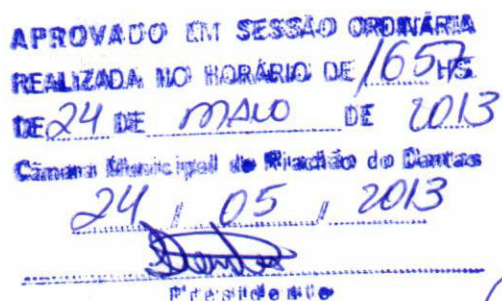 APROVADO EM SESSÃO ORDINÁRIA
REALIZADA NO HORÁRIO DE 1657 HS
DE 24 DE MAIO DE 2013
Câmara Municipal de Riachão do Dantas
24 / 05 / 2013
Dantas
Presidente